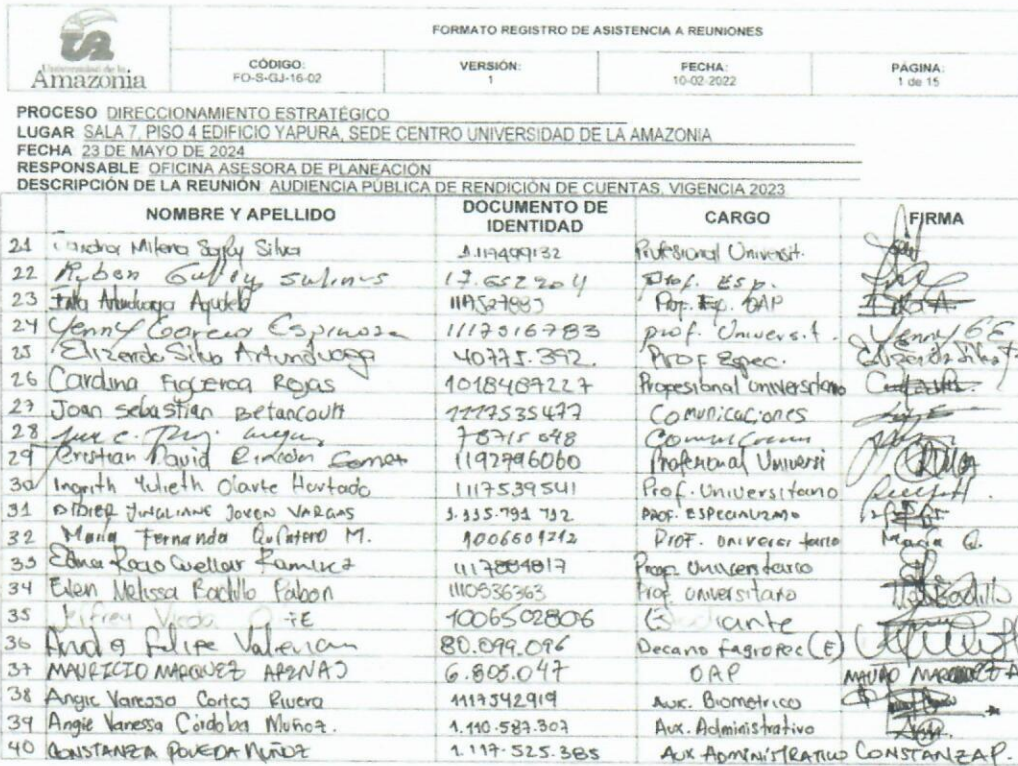 Universidad de la
Amazonia
FORMATO REGISTRO DE ASISTENCIA A REUNIONES
CÓDIGO:
FO-S-GJ-16-02
VERSIÓN:
1
FECHA:
10-02-2022
PÁGINA:
1 de 15
PROCESO DIRECCIONAMIENTO ESTRATÉGICO
LUGAR SALA 7, PISO 4 EDIFICIO YAPURA, SEDE CENTRO UNIVERSIDAD DE LA AMAZONIA
FECHA 23 DE MAYO DE 2024
RESPONSABLE OFICINA ASESORA DE PLANEACIÓN
DESCRIPCIÓN DE LA REUNIÓN AUDIENCIA PÚBLICA DE RENDICIÓN DE CUENTAS, VIGENCIA 2023
NOMBRE Y APELLIDO DOCUMENTO DE IDENTIDAD CARGO FIRMA
21 Milena Silva 1.117499132 Profesional Universit.
22 Ruben Salinas 17.652204 Prof. Esp.
23 Artunduaga Agudelo Prof. Esp. OAP
24 Yenny Garcia Espinosa 1117516783 prof. Universit. Yenny G E
25 Elizenda Silva Artunduaga 40775.392. Prof Espec.
26 Carolina Figueroa Rojas 1018487227 Propesional universitario
27 Joan sebastian Betancourt 1117535477 Comunicaciones
28 78715 098
29 Cristian David Rincón Gomez 1192796060 Profesional Universi
30 Ingrith Yulieth Olarte Hurtado 1117539541 Prof. Universitario
31 DIDIER JOVEN VARGAS PROF. ESPECIALIZADO
32 Maria Fernanda Quintero M. 1006601212 Prof. Universitario Maria Q.
33 Edna Rocio Cuellar Ramirez Prof. Universitario
34 Melissa Badillo Pabon 1110536363 Prof. universitario Badillo
35 Jeifrey 1006502806
36 Felipe Valencia 80.099.096 Decano Fagropec (E)
37 MAURICIO MARQUEZ ARENAS 6.805.047 OAP
38 Angie Vanessa Cortes Rivera 1117542919 Aux. Biometrico
39 Angie Vanessa Córdoba Muñoz. 1.110.587.307 Aux. Administrativo
40 CONSTANZA POVEDA MUÑOZ 1.117.525.385 AUX ADMINISTRATIVO CONSTANZA P.